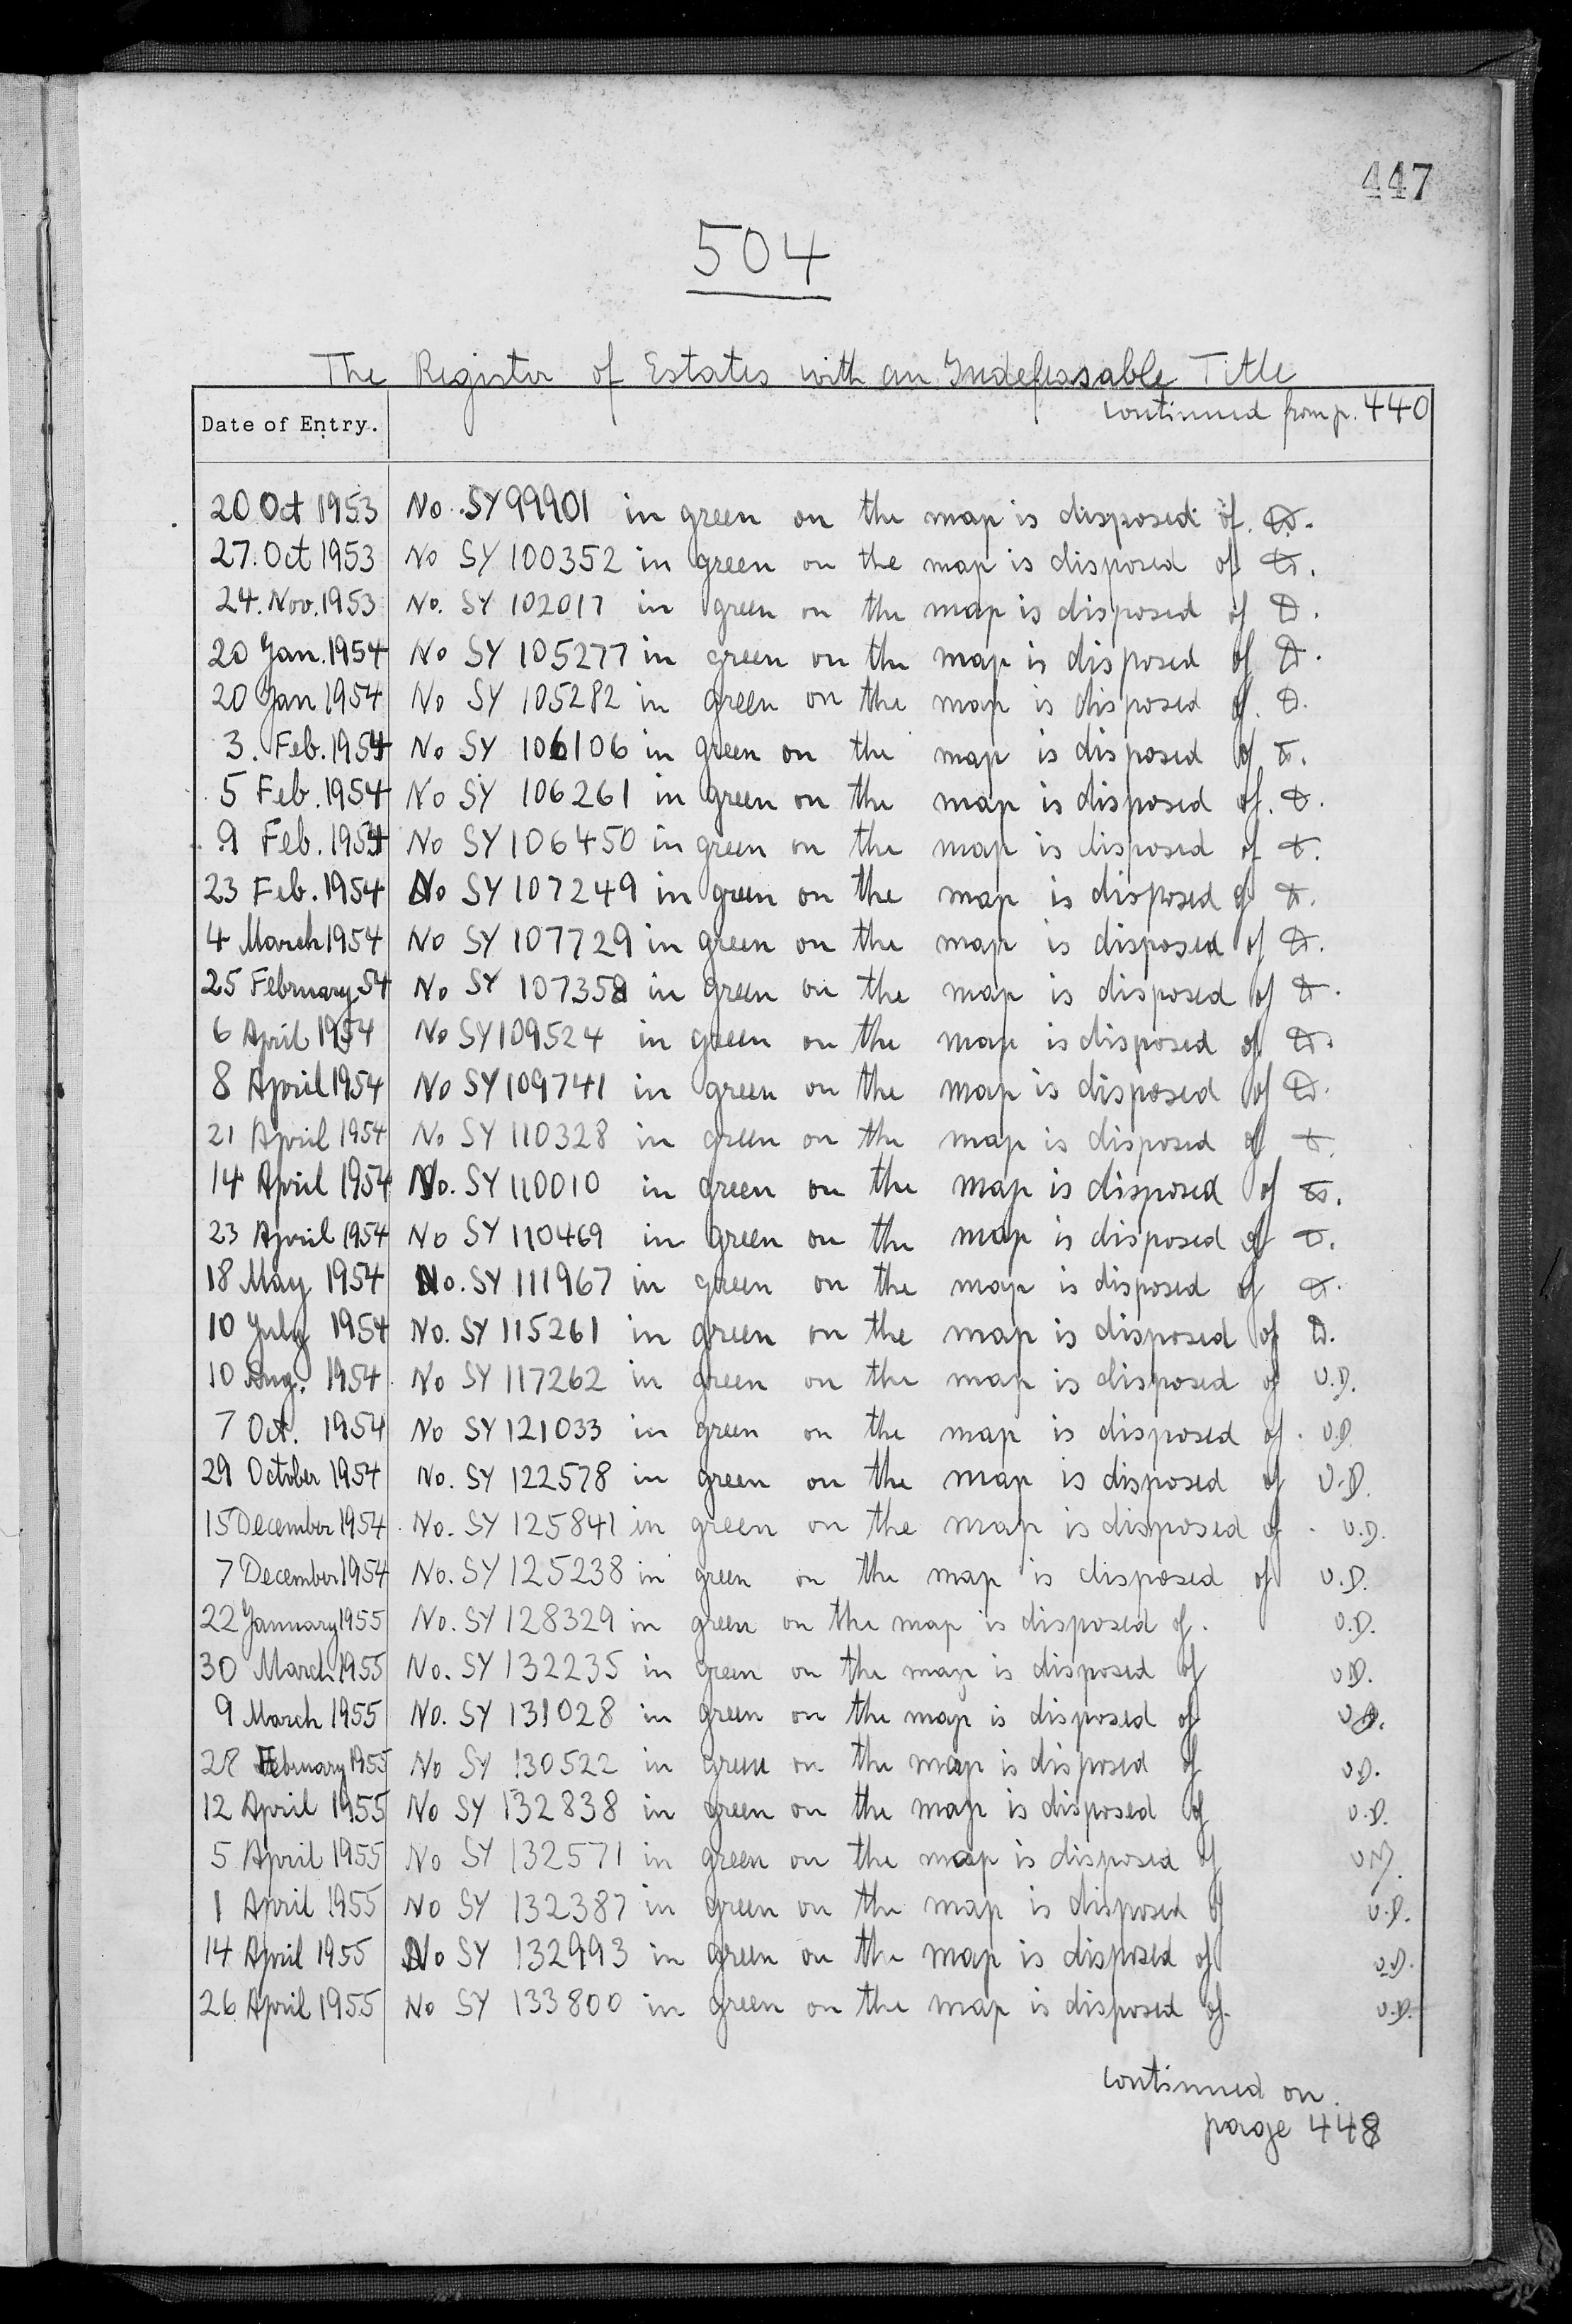 447
504
The Register of Estates with an Indefeasable Title
continued from p. 440
Date of Entry.
20 Oct 1953 No. SY 99901 in green on the map is disposed of.
27. Oct 1953 No SY 100352 in green on the map is disposed of
24. Nov. 1953 No. SY 102017 in green on the map is disposed of
20 Jan. 1954 No SY 105277 in green on the map is disposed of
20 Jan 1954 No SY 105282 in green on the map is disposed of.
3. Feb. 1954 No SY 106106 in green on the map is disposed of
5 Feb. 1954 No SY 106261 in green on the map is disposed of.
9 Feb. 1954 No SY 106450 in green on the map is disposed of
23 Feb. 1954 No SY 107249 in green on the map is disposed of
4 March 1954 No SY 107729 in green on the map is disposed of
25 February 54 No SY 107358 in green on the map is disposed of
6 April 1954 No SY 109524 in green on the map is disposed of
8 April 1954 No SY 109741 in green on the map is disposed of
21 April 1954 No SY 110328 in green on the map is disposed of
14 April 1954 No. SY 110010 in green on the map is disposed of
23 April 1954 No SY 110469 in green on the map is disposed of
18 May 1954 No. SY 111967 in green on the map is disposed of
10 July 1954 No. SY 115261 in green on the map is disposed of
10 Aug. 1954 No SY 117262 in green on the map is disposed of U.D.
7 Oct. 1954 No SY 121033 in green on the map is disposed of. U.D.
29 October 1954 No. SY 122578 in green on the map is disposed of U.D.
15 December 1954 No. SY 125841 in green on the map is disposed of. U.D.
7 December 1954 No. SY 125238 in green on the map is disposed of U.D.
22 January 1955 No. SY 128329 in green on the map is disposed of. U.D.
30 March 1955 No. SY 132235 in green on the map is disposed of U.D.
9 March 1955 No. SY 131028 in green on the map is disposed of U.D.
28 February 1955 No SY 130522 in green on the map is disposed of U.D.
12 April 1955 No SY 132838 in green on the map is disposed of U.D.
5 April 1955 No SY 132571 in green on the map is disposed of U.D.
1 April 1955 No SY 132387 in green on the map is disposed of U.D.
14 April 1955 No SY 132993 in green on the map is disposed of U.D.
26 April 1955 No SY 133800 in green on the map is disposed of. U.D.
continued on
page 448